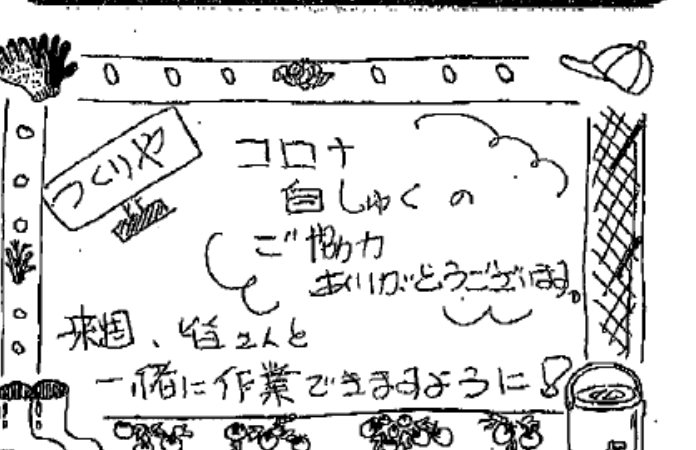 つくりや
コロナ
自しゅくの
ご協力
ありがとうございます。
来週、皆さんと
一緒に作業できますように!